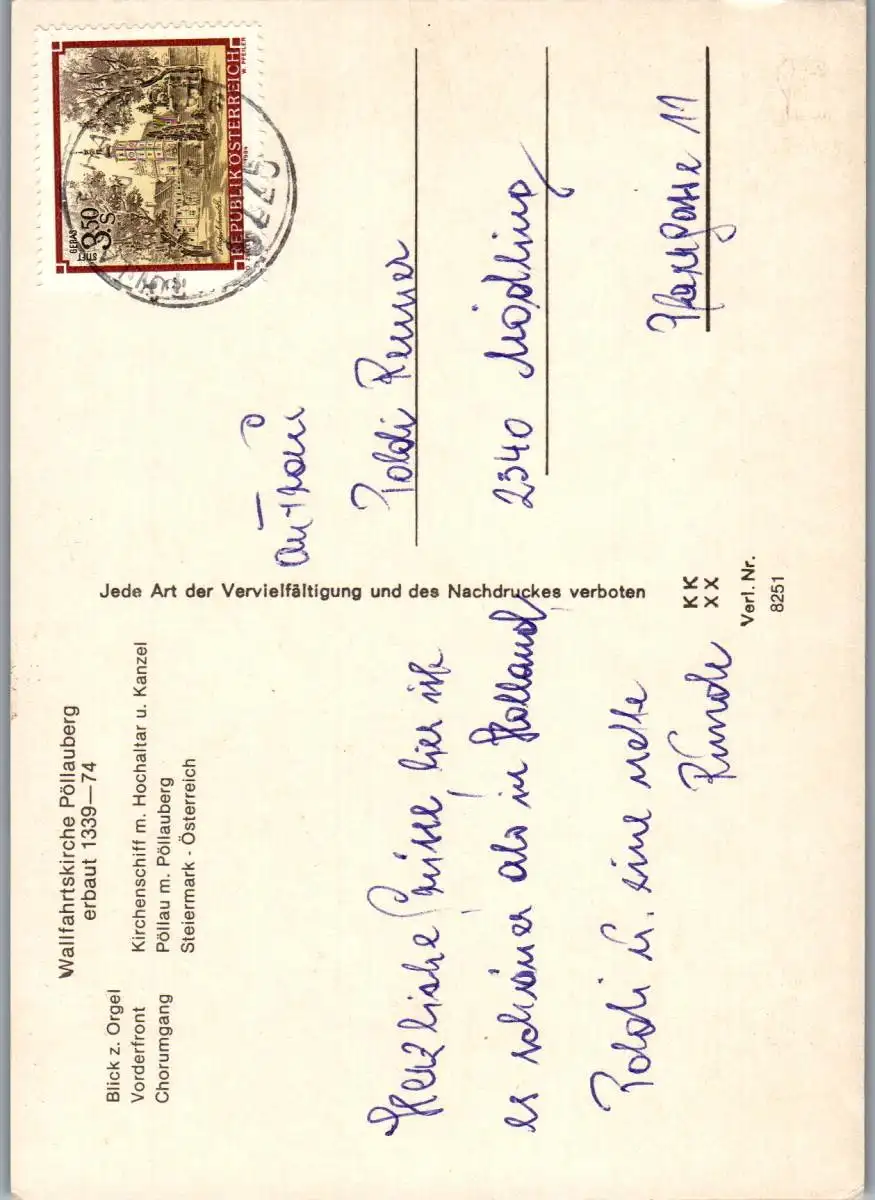 Wallfahrtskirche Pöllauberg
erbaut 1339—74
Blick z. Orgel
Vorderfront
Chorumgang
Kirchenschiff m. Hochaltar u. Kanzel
Pöllau m. Pöllauberg
Steiermark - Österreich
Herzliche Grüsse hier ist
es schöner als in Holland
Poldi u. eine nette
Runde
Jede Art der Vervielfältigung und des Nachdruckes verboten
KK
XX
Verl. Nr.
8251
REPUBLIK ÖSTERREICH
W. PFEILER
1984
STIFT GERAS
S 3.50
8225
Poldi Renner
2340 Mödling
Pfarrgasse 11